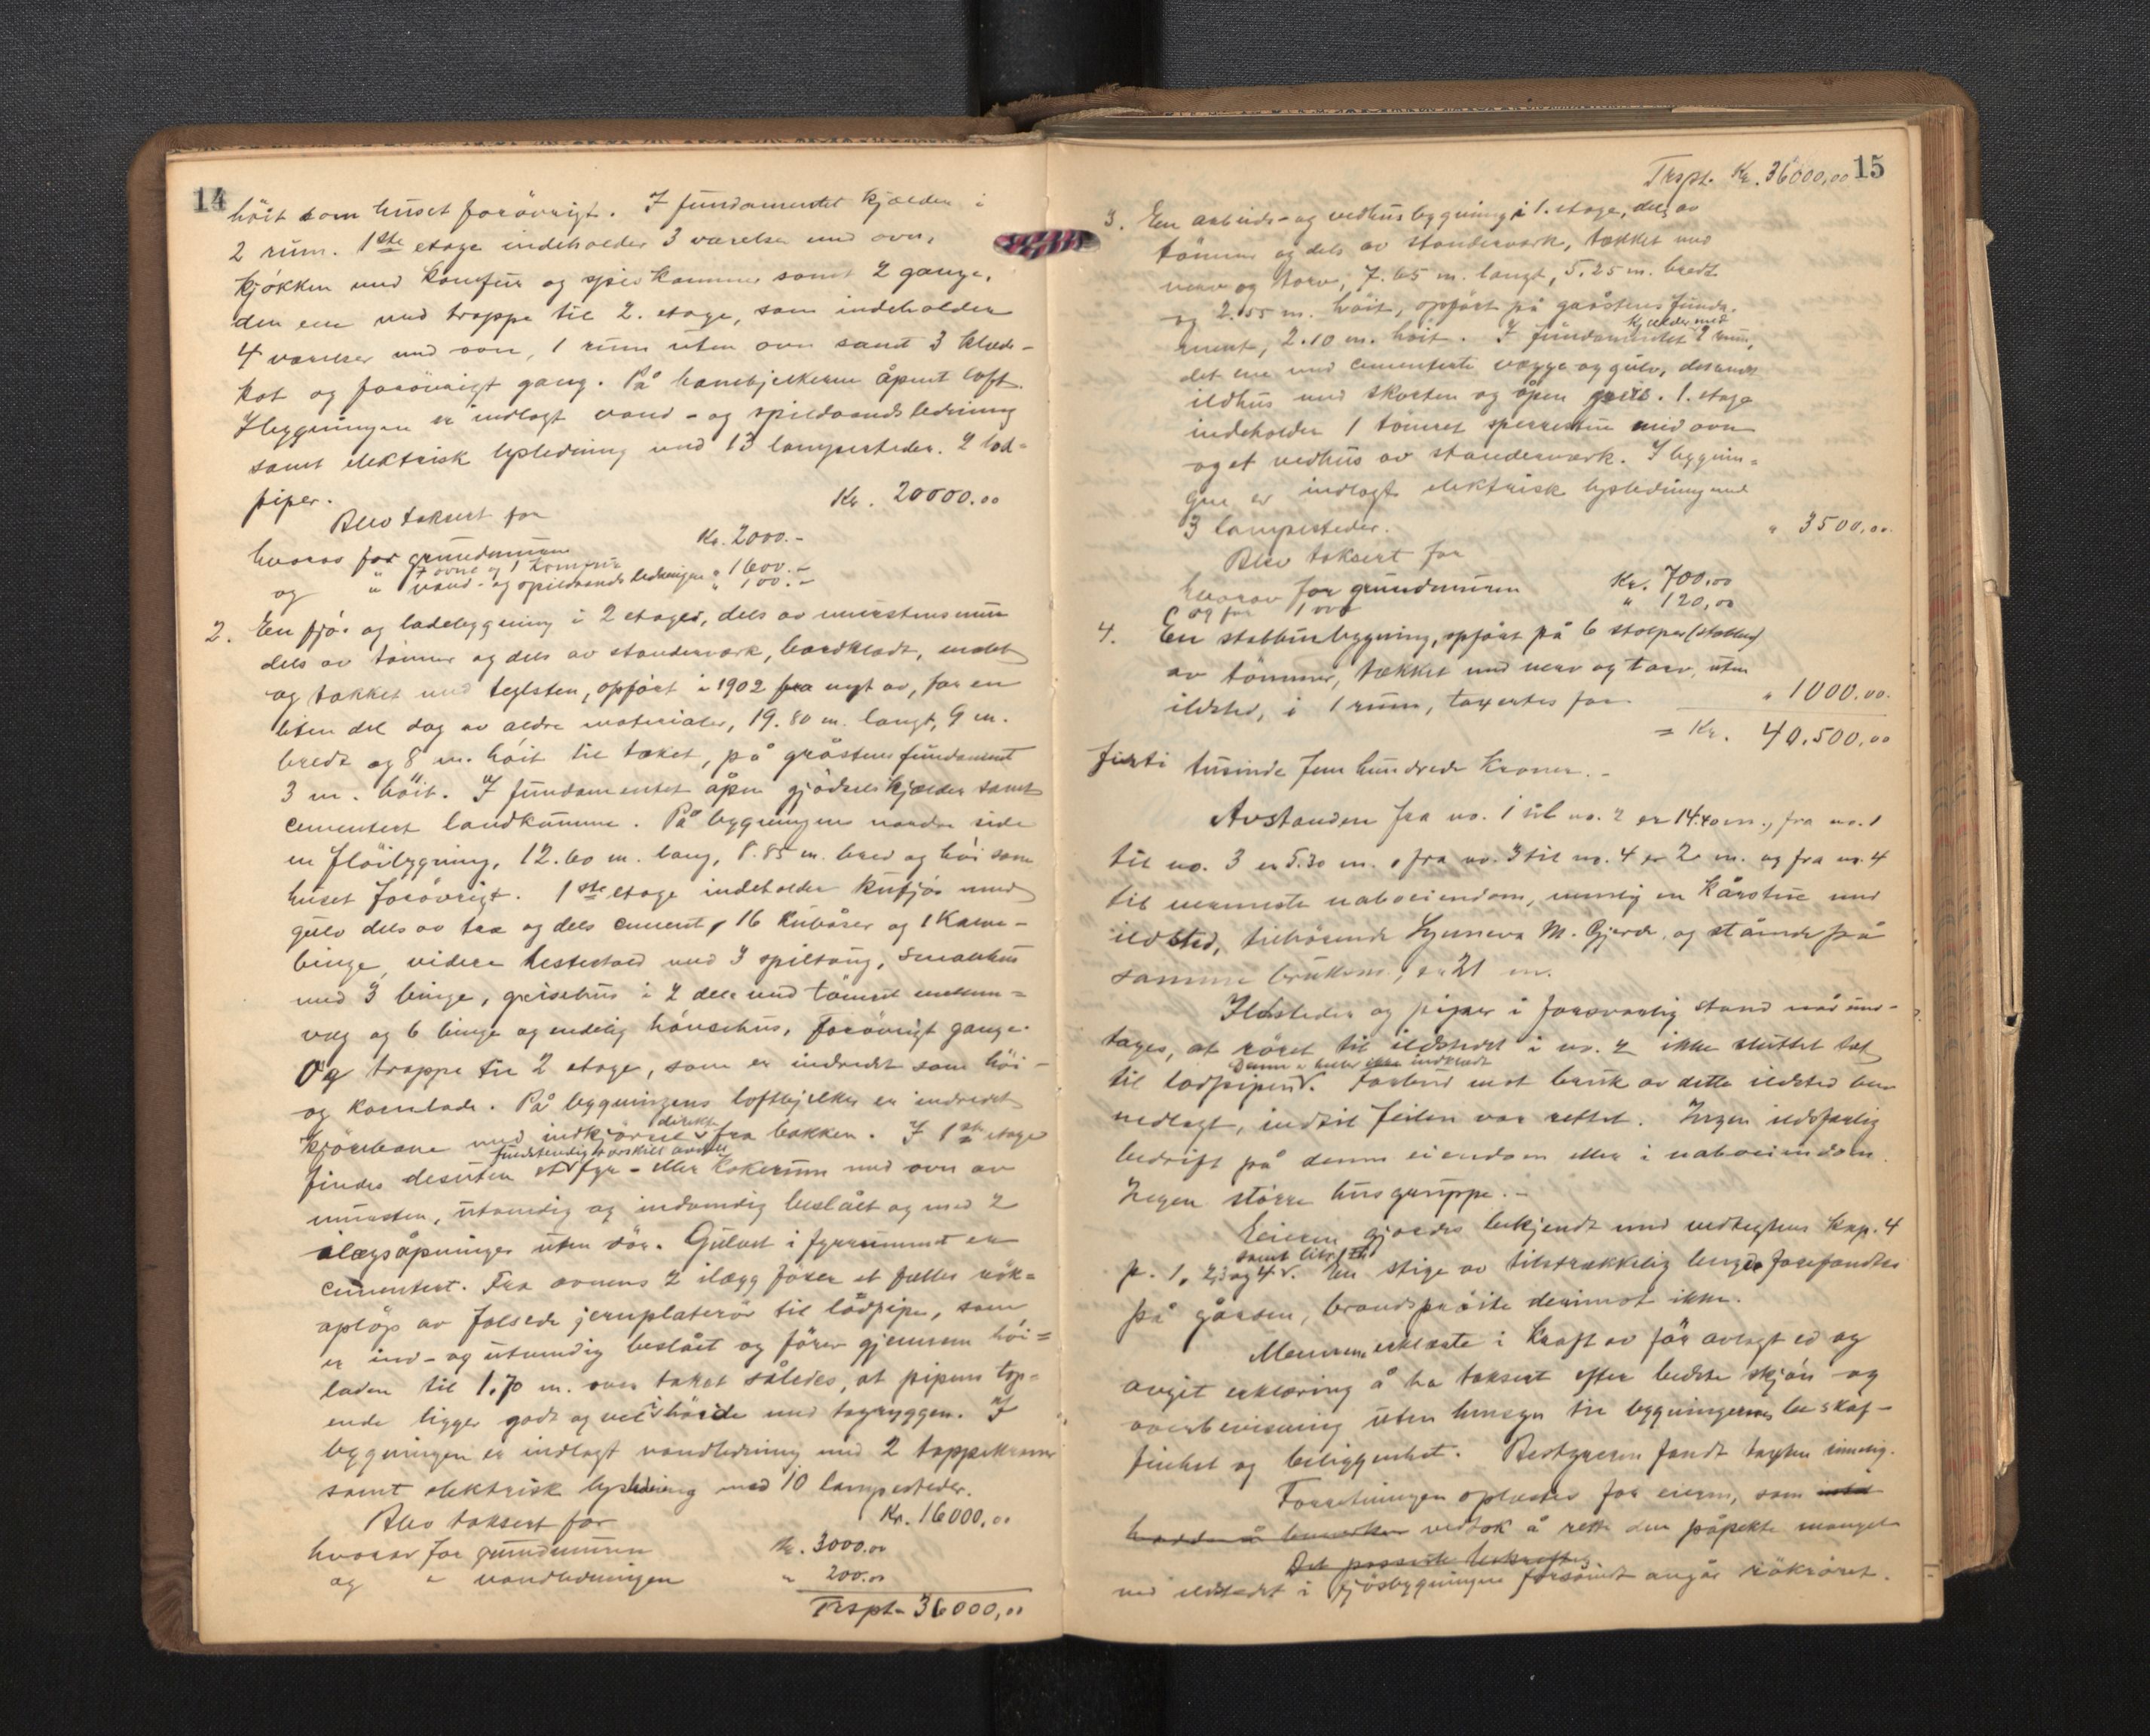 14
höit som huset forövrigt. I fundamentet kjælder i
2 rum. 1ste etage indeholder 3 værelser med ovn,
kjökken med komfur og spiskammer samt 2 gange,
den ene med trappe til 2. etage, som indeholder
4 værelser med ovn, 1 rum uten ovn samt 3 klæde-
kot og forövrigt gang. På hanebjelkerne åpent loft.
I bygningen er indlagt vand- og spildvandsledning
samt elektrisk lysledning med 13 lampesteder. 2 lod-
piper.
Blev taksert for Kr. 20000.00
hvorav for grundmuren Kr. 2000.-
7 ovne og 1 komfur " 1600.-
og " vand- og spildvandsledningen " 100.-
2. En fjös og ladebygning i 2 etager, dels av murstensmur
dels av tömmer og dels av standerverk, bordklædt, malet
og tækket med teglsten, opfört i 1902 fra nyt av, for en
liten del dog av ældre materialer, 19.80 m. langt, 9 m.
bredt og 8 m. höit til taket, på gråstens fundament
3 m. höit. I fundamentet åpen gjödselskjælder samt
cementert landkumme. På bygningens nordre side
en flöibygning, 12.60 m. lang, 8.85 m. bred og höi som
huset forövrigt. 1ste etage indeholder kufjös med
gulv dels av træ og dels cement, 16 kubåser og 1 kalve-
binge, videre hestestald med 3 spiltaug, smalehus
med 3 binge, grisehus i 2 dele med tömret mellem-
væg og 6 binge og endelig hönsehus, forövrigt gange.
Og trappe til 2 etage, som er indredet som höi-
og kornlade. På bygningens loftbjelker er indredet
kjörebane med indkjörsel direkte fra bakken. I 1ste etage
findes desuten et fuldstendig avskilt fyr- eller kokerum med ovn av
mursten, utvendig og indvendig beslået og med 2
ilægsåpninger uten dör. Gulvet i fyrrummet er
cementert. Fra ovnens 2 ilægg förer et fælles rök-
oplöp av falsede jernplaterör til lodpipe, som
er ind- og utvendig beslået og förer gjennem höi-
laden til 1.70 m. over taket således, at pipens top-
ende ligger godt og vel i höide med tagryggen. I
bygningen er indlagt vandledning med 2 tappekraner
samt elektrisk lysledning med 10 lampesteder.
Blev taksert for Kr. 16000,00
hvorav for grundmuren Kr. 3000.00
og " vandledningen " 200.00
Trspt. 36000,00
Trspt. Kr. 36000,00 15
3. En arbeids- og vedhusbygning i 1. etage, dels av
tömmer og dels av standerverk, tækket med
næver og torv, 7.65 m. langt, 5.25 m. bredt
og 2.55 m. höit, opfört på gråstens funda-
ment, 2.10 m. höit. I fundamentet kjælder med 2 rum,
det ene med cementerte vægge og gulv, desuten
ildhus med skorsten og åpen grue. 1. etage
indeholder 1 tömret sperrestue med ovn
og et vedhus av standerverk. I bygnin-
gen er indlagt elektrisk lysledning med
3 lampesteder.
Blev taksert for " 3500,00.
hvorav for grundmuren Kr. 700,00
og for 1 ovn " 120,00
4. En stabburbygning, opfört på 6 stolper (stabber)
av tömmer, tækket med næver og torv, uten
ildsted, i 1 rum, taxertes for " 1000.00.
= Kr. 40.500,00
firti tusinde fem hundrede kroner.-
Avstanden fra no. 1 til no. 2 er 14.40 m., fra no. 1
til no. 3 er 5.30 m., fra no. 3 til no. 4 er 2 m. og fra no. 4
til nærmeste naboeiendom, nemlig en kårstue med
ildsted, tilhörende Synneva M. Gjerde, og stående på
samme bruksnr, er 21 m.
Ildsteder og piper i forsvarlig stand når und-
tages, at röret til ildstedet i no. 2 ikke sluttet tæt
til lodpipen. Denne er heller ikke indklædt. Forbud mot bruk av dette ildsted blev
nedlagt, indtil feilen var rettet. Ingen ildsfarlig
bedrift på denne eiendom eller i naboeiendom.
Ingen större husgruppe.-
Eieren gjordes bekjendt med vedtegtens kap. 4
p. 1, 2, 3 og 4 samt litr. En stige av tilstrækkelig lengde forefandtes
på gården, brandspröite derimot ikke.
Mennene erklærte i kraft av för avlagt ed og
avgit erklæring å ha taksert efter bedste skjön og
overbevisning uten hensyn til bygningernes beskaf-
fenhet og beliggenhet. Bestyreren fandt taksten rimelig.
Forretningen oplæstes for eieren, som intet
hadde å bemerke vedtok å rette den påpekte mangel
Det passerte bekræftes
ved ildstedet i fjösbygningen forsåvidt angår rökröret.